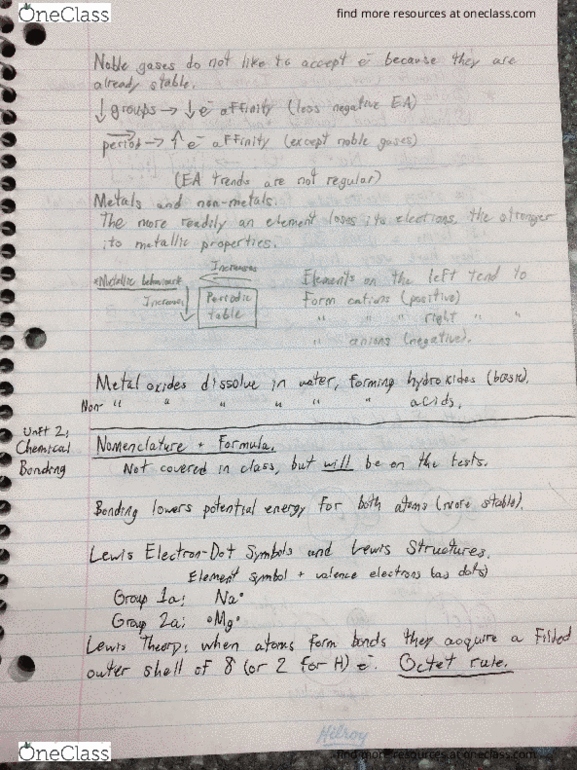 OneClass
find more resources at oneclass.com
Noble gases do not like to accept e⁻ because they are
already stable.
↓ groups → ↓ e⁻ affinity (less negative EA)
period → ↑ e⁻ affinity (except noble gases)
(EA trends are not regular)
Metals and non-metals:
The more readily an element loses its electrons, the stronger
its metallic properties.
Metallic behaviour
Increases
Increases
Periodic
table
Elements on the left tend to
form cations (positive)
" " " right " "
" anions (negative).
Metal oxides dissolve in water, forming hydroxides (basic).
Non- " " " " " acids.
Unit 2:
Chemical
Bonding
Nomenclature + Formula.
Not covered in class, but will be on the tests.
Bonding lowers potential energy for both atoms (more stable).
Lewis Electron-Dot Symbols and Lewis Structures.
Element symbol + valence electrons (as dots)
Group 1a: Na•
Group 2a: •Mg•
Lewis Theory: when atoms form bonds they acquire a filled
outer shell of 8 (or 2 for H) e⁻. Octet rule.
Hilroy
OneClass
find more resources at oneclass.com